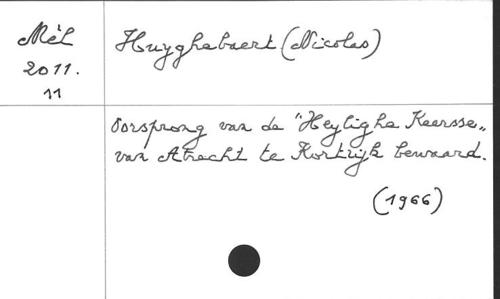 Mél
2011.
11
Huyghebaert (Nicolas)
Oorsprong van de "Heylighe Keersse„
van Atrecht te Kortrijk bewaard.
(1966)